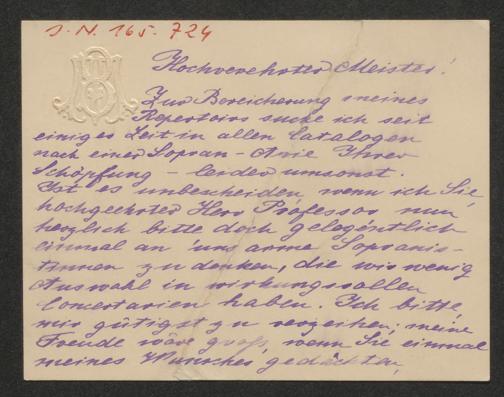 J. N. 165.724
Hochverehrter Meister!
Zur Bereicherung meines
Repertoirs suche ich seit
einiger Zeit in allen Catalogen
nach einer Sopran-Arie Ihrer
Schöpfung - leider umsonst.
Ist es unbescheiden wenn ich Sie,
hochgeehrter Herr Professor nun
herzlich bitte doch gelegentlich
einmal an uns arme Sopranis-
tinnen zu denken, die wir wenig
Auswahl in wirkungsvollen
Concertarien haben. Ich bitte,
mir gütigst zu verzeihen; meine
Freude wäre groß, wenn Sie einmal
meines Wunsches gedächten,